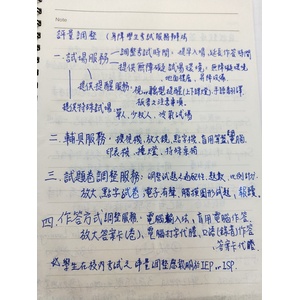 Note
評量調整 (身障學生考試服務辦法
一.試場服務－調整考試時間。提早入場、延長作答時間
提供無障礙試場環境。無障礙環境、
地面樓層、昇降設備.
提供提醒服務－視、聽覺提醒(上下課鐘)、手語翻譯
板書注意事項.
提供特殊試場 單人、少數人、冷氣試場
二.輔具服務。擴視機、放大鏡、點字機、盲用算盤、電腦
印表機、檯燈、特殊桌椅
三.試題卷調整服務。調整試題之適配性、題數、比例計分、
放大、點字試卷、電子有聲、觸摸圖形試題、報讀.
四.作答方式調整服務。電腦輸入法、盲用電腦作答、
放大答案卡(卷)、電腦打字代謄、口語(錄音)作答、
答案卡代謄
學生在校內考試之評量調整應載明於IEP or ISP.